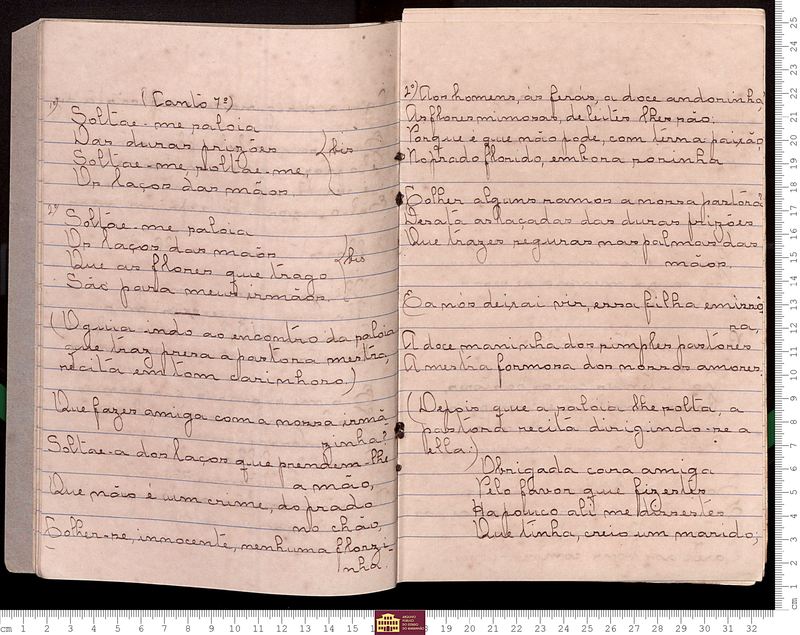 (Canto 7º)
1º) Soltae-me saloia
Das duras prizões
Soltae-me soltae-me,
Os laços das mãos.
bis
2º) Soltae-me saloia
Os laços das mãos
Que as flores que trago
São para meus irmãos.
bis
(O guia indo ao encontro da saloia
que traz presa a pastora mestra,
recita em tom carinhoso.)
Que fazes amiga com a nossa irmã-
zinha?
Soltae-a dos laços que prendem-lhe
a mão,
Que não é um crime, do prado
no chão,
Colher-se, innocente, nenhuma florzi-
nha.
2º) Aos homens, ás feras, a doce andorinha
As flores mimosas, deleites lhes são:
Porque é que não pode, com terna paixão,
No prado florido, embora sozinha
Colher alguns ramos a nossa pastora?
Desata as laçadas das duras prizões
Que trazes seguras nas palmas das
mãos.
E a nós deixai vir, essa filha emisso-
ra,
A doce maninha dos simples pastores
A mestra formosa dos nossos amores.
(Depois que a saloia lhe solta, a
pastora recita dirigindo-se a
ella:)
Obrigada cara amiga
Pelo favor que fizestes
Ha pouco ali me dissestes
Que tinha, creio um marido;
cm 1 2 3 4 5 6 7 8 9 10 11 12 13 14 15
ARQUIVO
PÚBLICO
DO ESTADO
DO MARANHÃO
18 19 20 21 22 23 24 25 26 27 28 29 30 31 32
cm 1 2 3 4 5 6 7 8 9 10 11 12 13 14 15 16 17 18 19 20 21 22 23 24 25